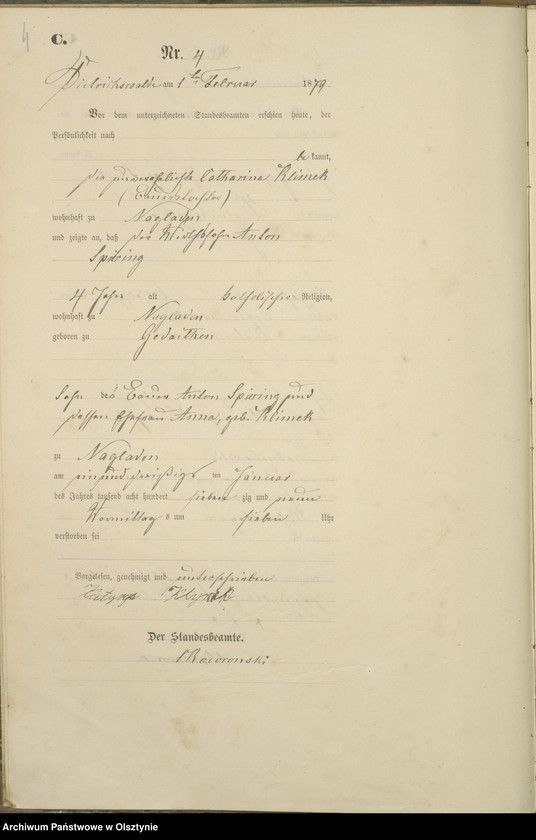 4
C.
Nr. 4
Dietrichswalde am 1ten Februar 1879
Vor dem unterzeichneten Standesbeamten erschien heute, der
Persönlichkeit nach
be kannt,
die unverehelichte Catharina Klimek
wohnhaft zu Nagladen
und zeigte an, daß der Anton
Spiering
4 Jahr alt katholischer Religion,
wohnhaft zu Nagladen
geboren zu Gedaithen
Sohn des Bauer Anton Spiering und
dessen Ehefrau Anna, geb. Klimek
zu Nagladen
am einunddreißigs ten Januar
des Jahres tausend acht hundert sieben zig und neun
Vormittag s um sieben Uhr
verstorben sei
Vorgelesen, genehmigt und unterschrieben
Der Standesbeamte.
Archiwum Państwowe w Olsztynie